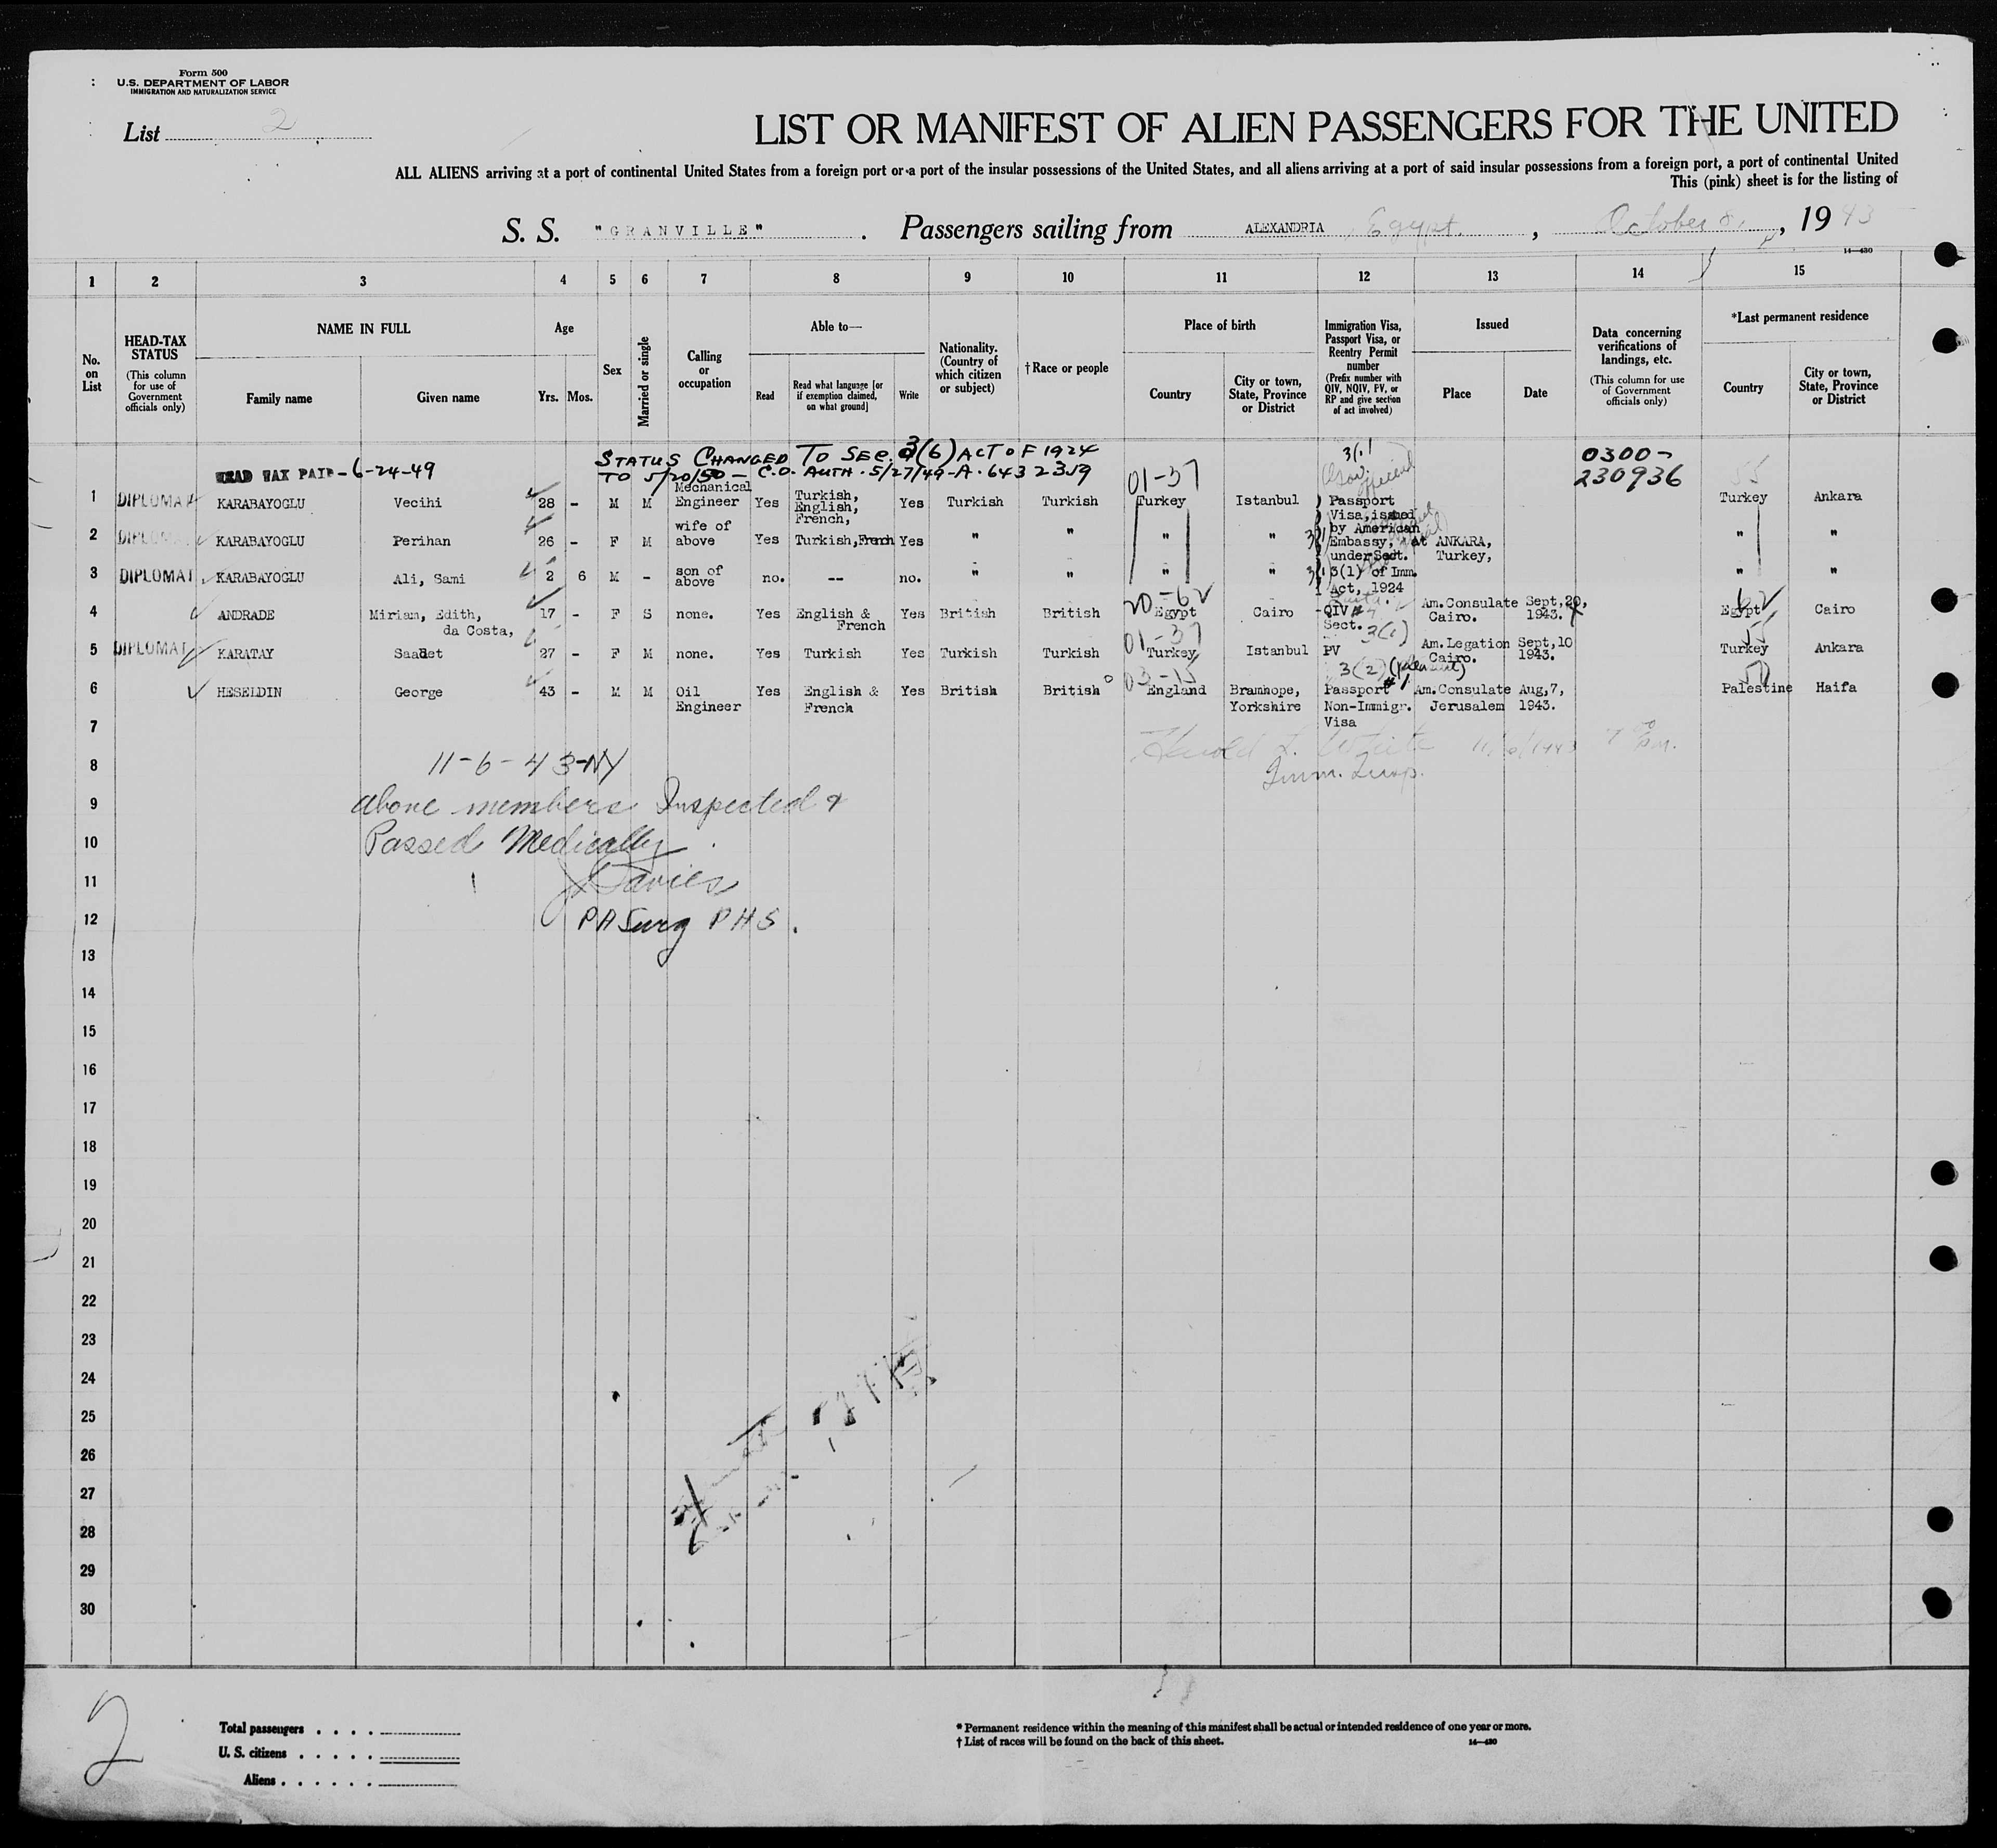 Form 500
U.S. DEPARTMENT OF LABOR
IMMIGRATION AND NATURALIZATION SERVICE
List 2
LIST OR MANIFEST OF ALIEN PASSENGERS FOR THE UNITED
ALL ALIENS arriving at a port of continental United States from a foreign port or a port of the insular possessions of the United States, and all aliens arriving at a port of said insular possessions from a foreign port, a port of continental United
This (pink) sheet is for the listing of
S. S. "GRANVILLE" . Passengers sailing from ALEXANDRIA Egypt. , October 8, , 1943
14—430
1 2 3 4 5 6 7 8 9 10 11 12 13 14 15
No. on List
HEAD-TAX STATUS (This column for use of Government officials only)
NAME IN FULL Family name Given name
Age Yrs. Mos.
Sex
Married or single
Calling or occupation
Able to— Read Read what language [or if exemption claimed, on what ground] Write
Nationality. (Country of which citizen or subject)
†Race or people
Place of birth Country City or town, State, Province or District
Immigration Visa, Passport Visa, or Reentry Permit number (Prefix number with QIV, NQIV, PV, or RP and give section of act involved)
Issued Place Date
Data concerning verifications of landings, etc. (This column for use of Government officials only)
*Last permanent residence Country City or town, State, Province or District
HEAD TAX PAID - 6-24-49 STATUS CHANGED TO SEC. 3(6) ACT OF 1924 3(1 0300-
TO 5/20/50 - C.O. AUTH. 5/27/49-A-6432359 01-37 230936 55
1 DIPLOMAT KARABAYOGLU Vecihi 28 - M M Mechanical Engineer Yes Turkish, English, French, Yes Turkish Turkish Turkey Istanbul ) Passport Turkey Ankara
Visa, issued
2 DIPLOMAT KARABAYOGLU Perihan 26 - F M wife of above Yes Turkish, French Yes " " " " 3(1) by American Embassy, at ANKARA, " "
under Sect. Turkey,
3 DIPLOMAT KARABAYOGLU Ali, Sami 2 6 M - son of above no. -- no. " " " " 3(1) 3(1) of Imm. Act, 1924 " "
20-62 62
4 ANDRADE Miriam, Edith, da Costa, 17 - F S none. Yes English & French Yes British British Egypt Cairo QIV # Sect. Am. Consulate Cairo. Sept, 20, 1943. Egypt Cairo
01-37 3(1)
5 DIPLOMAT KARATAY Saadet 27 - F M none. Yes Turkish Yes Turkish Turkish Turkey Istanbul PV Am. Legation Cairo. Sept, 10 1943. Turkey Ankara
03-15 3(2)
6 HESELDIN George 43 - M M Oil Engineer Yes English & French Yes British British England Bramhope, Yorkshire Passport #1 Non-Immigr. Visa Am. Consulate Jerusalem Aug, 7, 1943. Palestine Haifa
7
Harold L. White 11/6/1943
8 11-6-43-NY Imm. Insp.
9 above members Inspected &
10 Passed Medically
11 J Davies
12 PA Surg PHS.
13
14
15
16
17
18
19
20
21
22
23
24
25
26
27
28
29
30
2
Total passengers
U. S. citizens
Aliens
* Permanent residence within the meaning of this manifest shall be actual or intended residence of one year or more.
† List of races will be found on the back of this sheet. 14—430